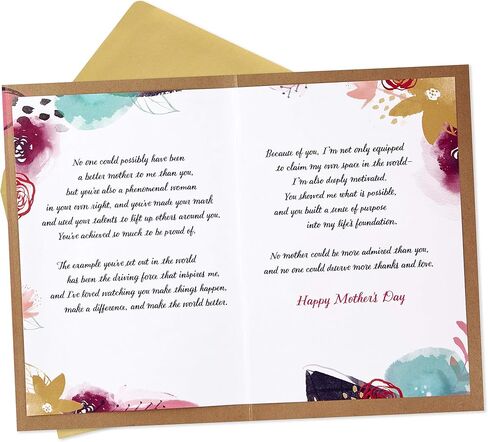 No one could possibly have been
a better mother to me than you,
but you're also a phenomenal woman
in your own right, and you've made your mark
and used your talents to lift up others around you.
You've achieved so much to be proud of.
The example you've set out in the world
has been the driving force that inspires me,
and I've loved watching you make things happen,
make a difference, and make the world better.
Because of you, I'm not only equipped
to claim my own space in the world–
I'm also deeply motivated.
You showed me what is possible,
and you built a sense of purpose
into my life's foundation.
No mother could be more admired than you,
and no one could deserve more thanks and love.
Happy Mother's Day